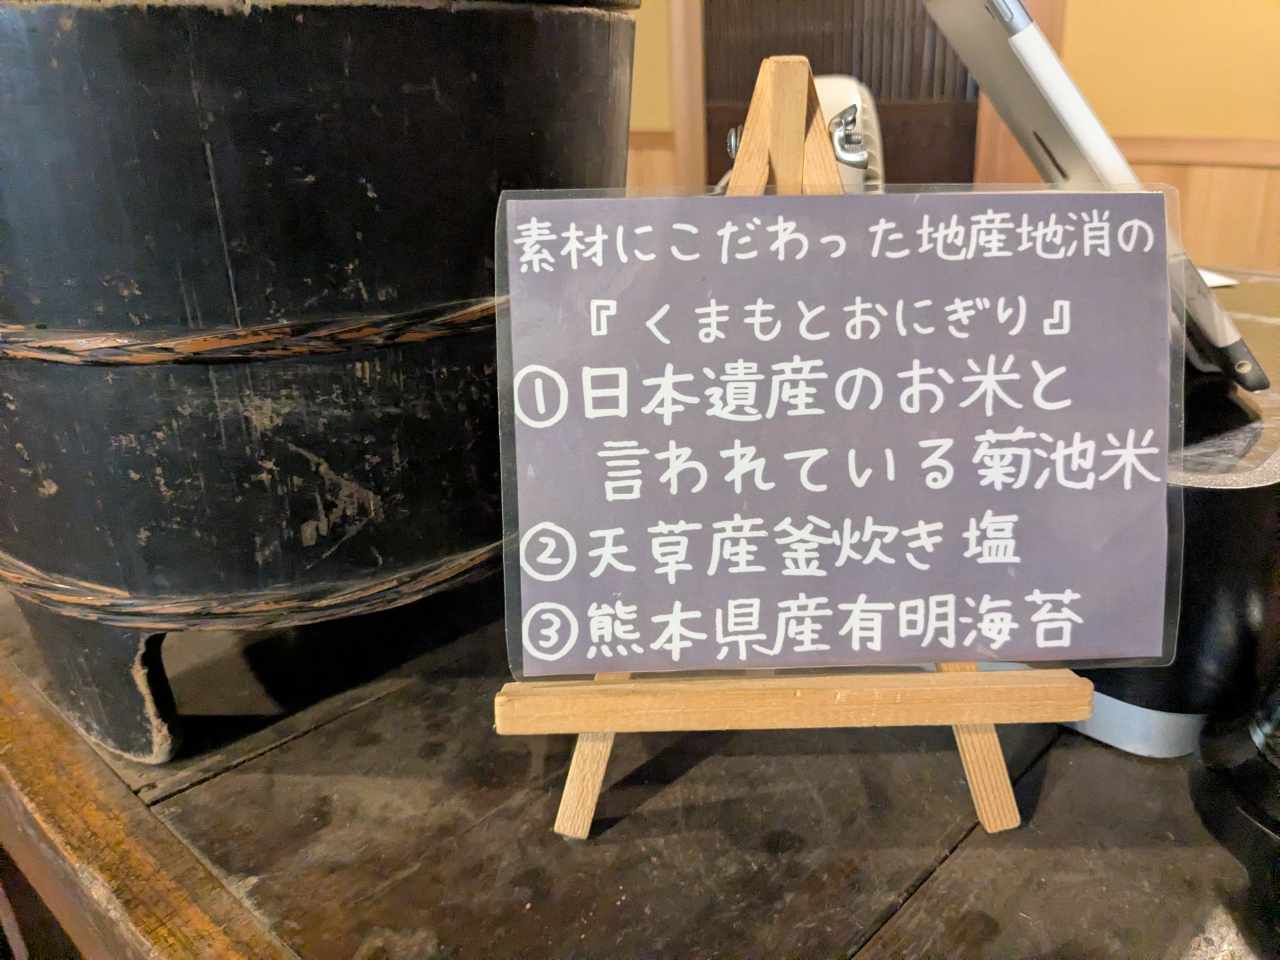 素材にこだわった地産地消の
『くまもとおにぎり』
①日本遺産のお米と
言われている菊池米
②天草産釜炊き塩
③熊本県産有明海苔